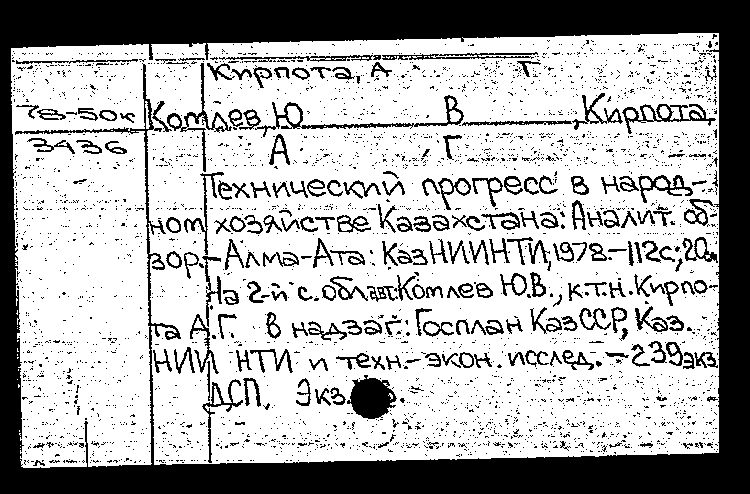 Кирпота, А Г
78-50к Котлев, Ю В , Кирпота,
3436 А Г
Технический прогресс в народ-
ном хозяйстве Казахстана: Аналит. об-
зор.-Алма-Ата: КазНИИНТИ, 1978.-112с; 20см
На 2-й с. обл. авт: Котлев Ю.В., к.т.н. Кирпо-
та А.Г. В надзаг.: Госплан КазССР, Каз.
НИИ НТИ и техн.-экон. исслед. - 239экз
ДСП. Экз.